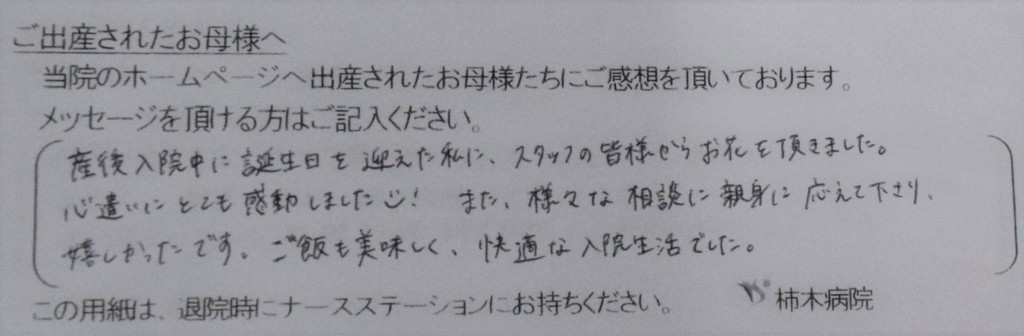 ご出産されたお母様へ
当院のホームページへ出産されたお母様たちにご感想を頂いております。
メッセージを頂ける方はご記入ください。
産後入院中に誕生日を迎えた私に、スタッフの皆様からお花を頂きました。
心遣いにとても感動しました☺! また、様々な相談に親身に応えて下さり、
嬉しかったです。ご飯も美味しく、快適な入院生活でした。
この用紙は、退院時にナースステーションにお持ちください。 柿木病院